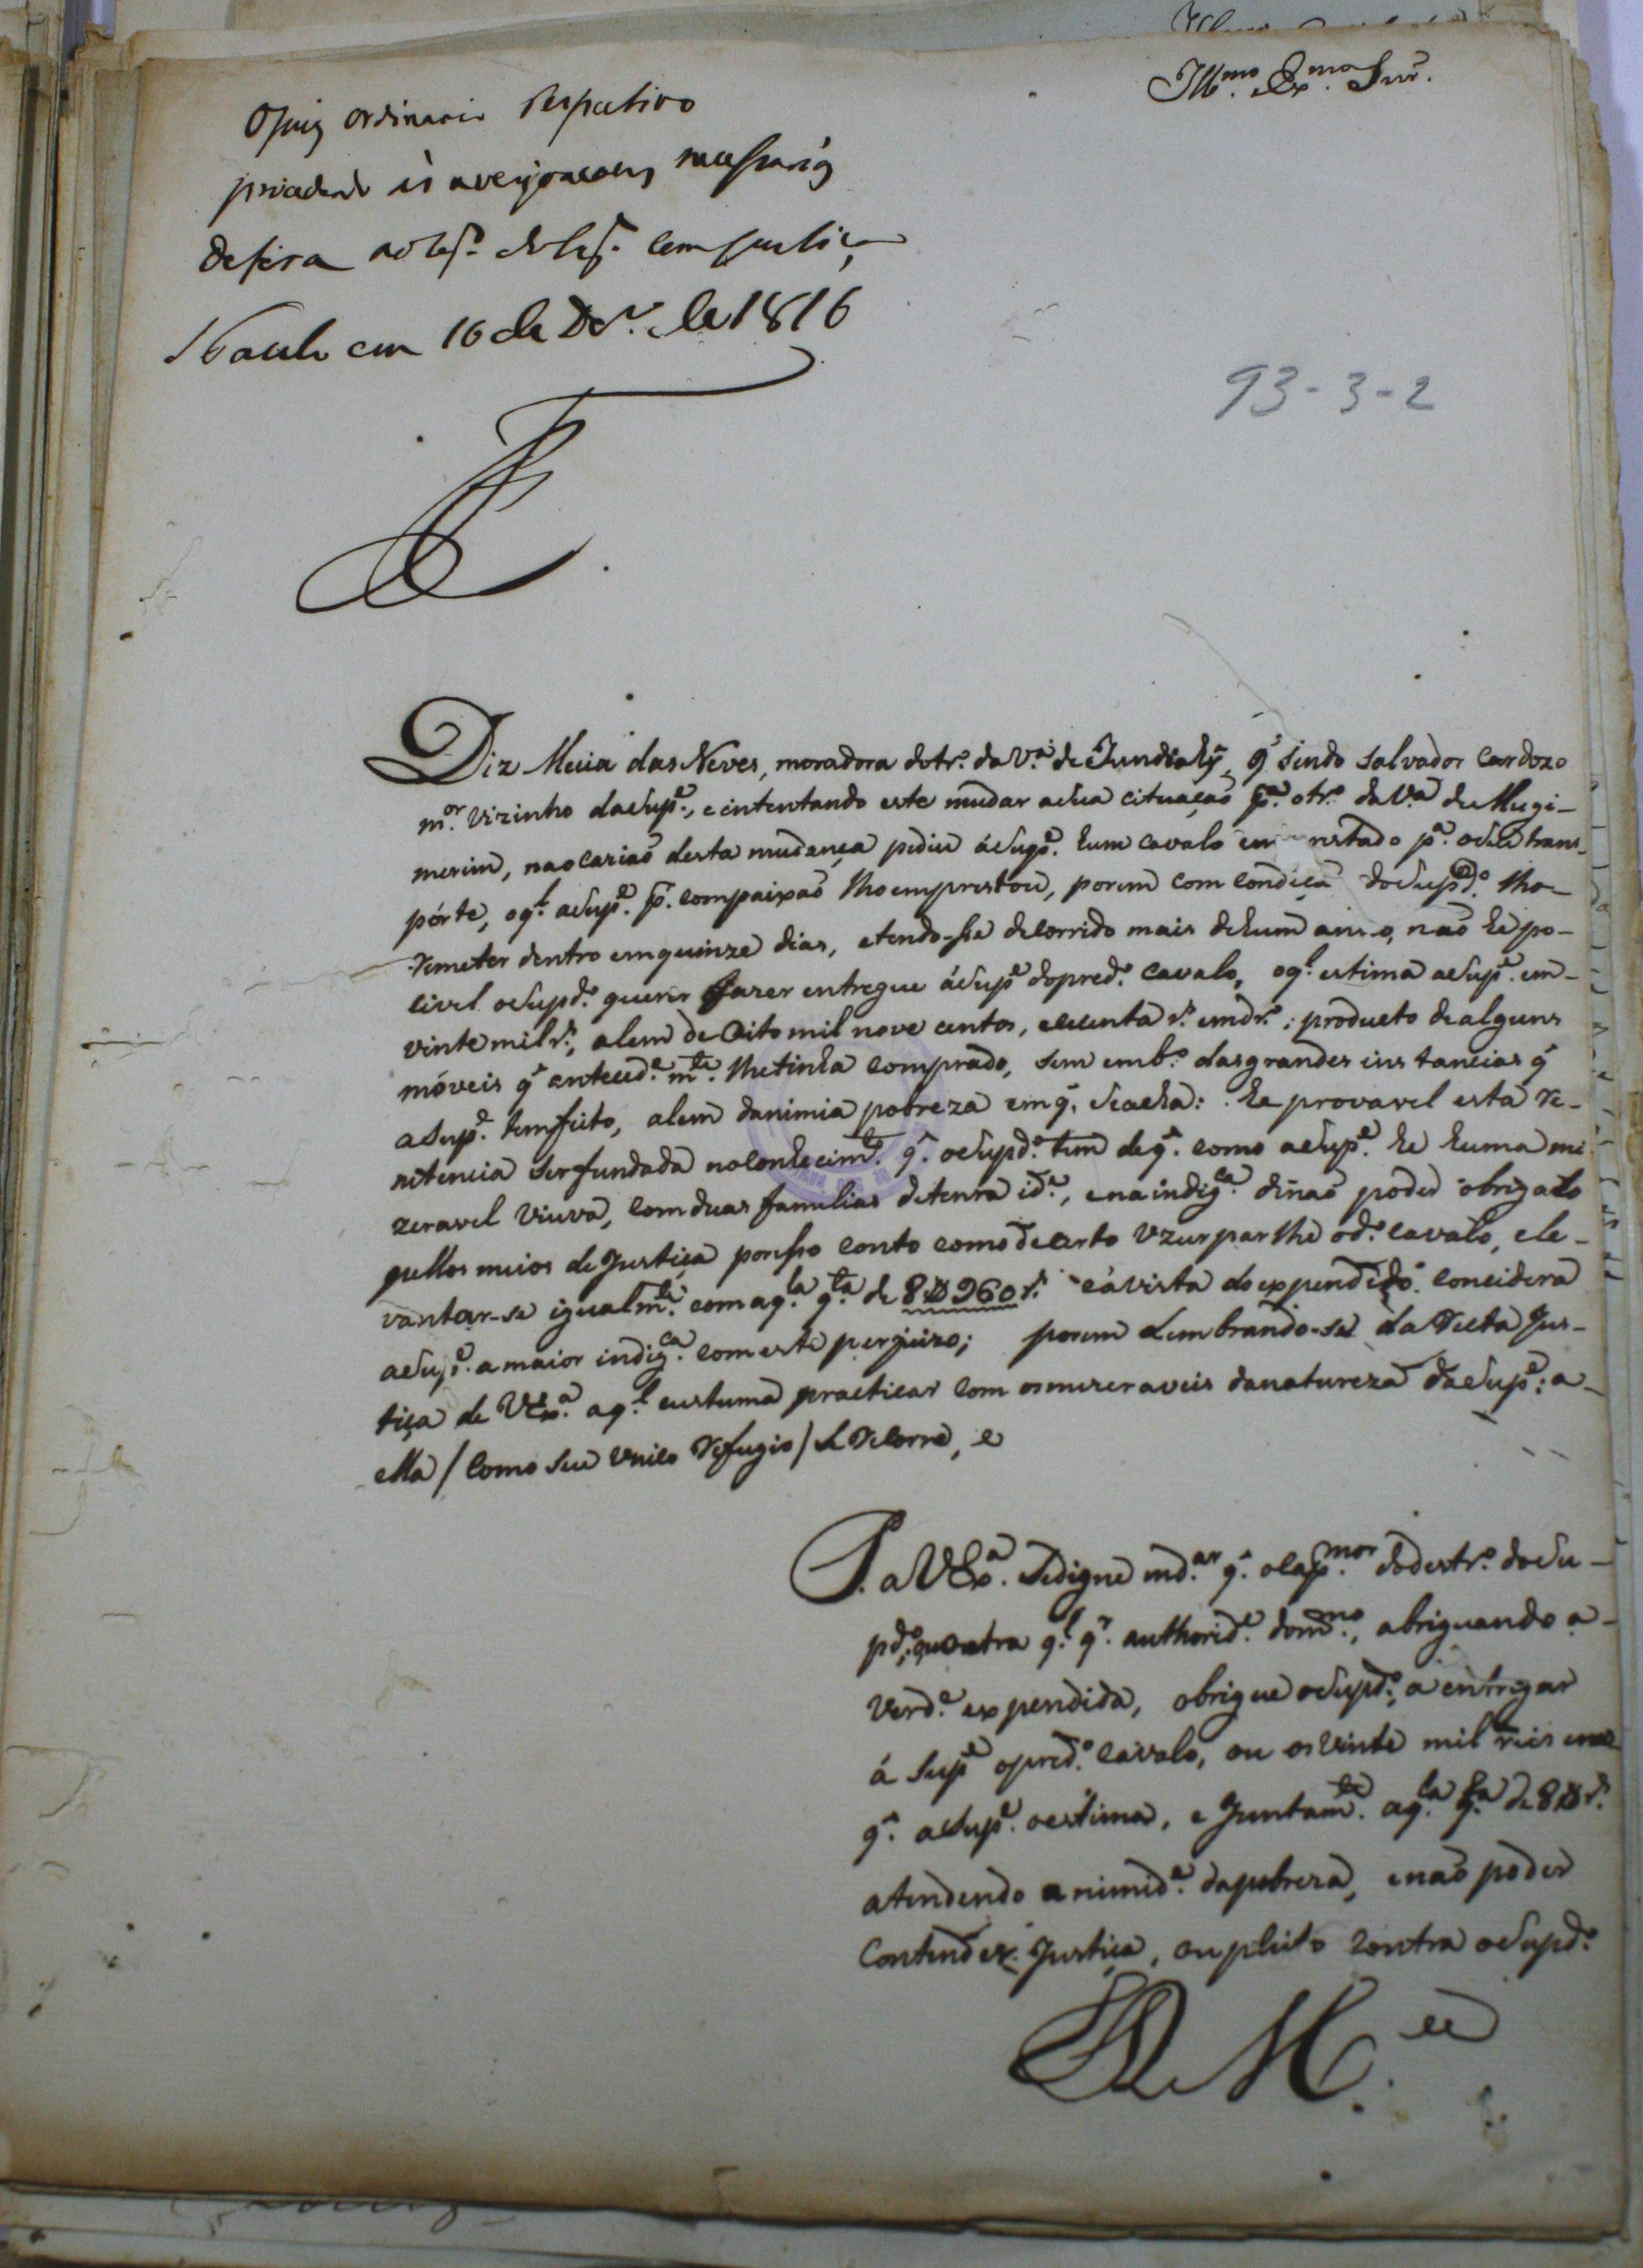 Ill.mo Ex.mo Snr.
O Juiz ordinario respectivo
procedendo ás averigoacoens necessarias
defira ao req.to da Sup.e com justiça,
S Paulo em 16 de Dbr.o de 1816
93-3-2
Diz Mecia das Neves, moradora dotr.o da V.a de Jundiahÿ, q̃ sindo Salvador Cardozo
m.or vizinho daSup.e, e intentando este mudar asua cituação p.a otr.o da V.a de Mugi-
merim, nao cazião desta mudança pediu áSup.e hum cavalo em restado p.a oSeu trans-
pórte, oq.l aSup.e p.r compaixaõ lho emprestou, porem com condiçã doSupd.o lho-
remeter dentro em quinze dias, etendo-se decorrido mais dehum anno, naõ he po-
civel oSupd.o querer fazer entregue áSup.e dopred.o cavalo, oq.l estima aSup.e em-
vinte mil r.s, alem de oito mil nove centos, ececenta r.s emdr.o; producto de alguns
móveis q̃ anteced.e m.te lhe tinha comprado, sem emb.o das grandes instancias q̃
aSup.e tem feito, alem danimia pobreza em q̃. Seacha: he provavel esta re-
nitencia ser fundada no conhecim.to q̃. oSupd.o tem de q̃. como aSup.e he huma mi
zeravel viuva, com duas familias detenra id.e, ena indig.ca dinaõ poder obrigalo
pellos meios de Justiça por isso conto como de certo vzurparlhe od.o cavalo, ele-
vantar-se igualm.te com aq.la q.ta de 8$960 r.s eávista do expendido concidera
aSup.e a maior indig.ca com este perjuizo; porem Lembrando-se da recta Jus-
tiça de VEx.a aq.l custuma practicar com os mizeraveis da natureza daSup.e: a-
ella / como seu unico refugio / se recorre, e
P. a VEx.a sedigne md.ar q̃. oCap.mor dodestr.o doSu-
pd.o, ououtra q.l q.r authorid.e domm.o, abriguando a-
verd.e expendida, obrigue oSupd.o, a entregar
á Sup.e opred.o cavalo, ou os vinte mil reis em
q̃. aSup.e oestima, e Juntam.te aq.la q.ta de 8$ r.s
atendendo a nimid.e dapobreza, enaõ poder
Contender Justiça, oupleito contra oSupd.o
E R M.ce